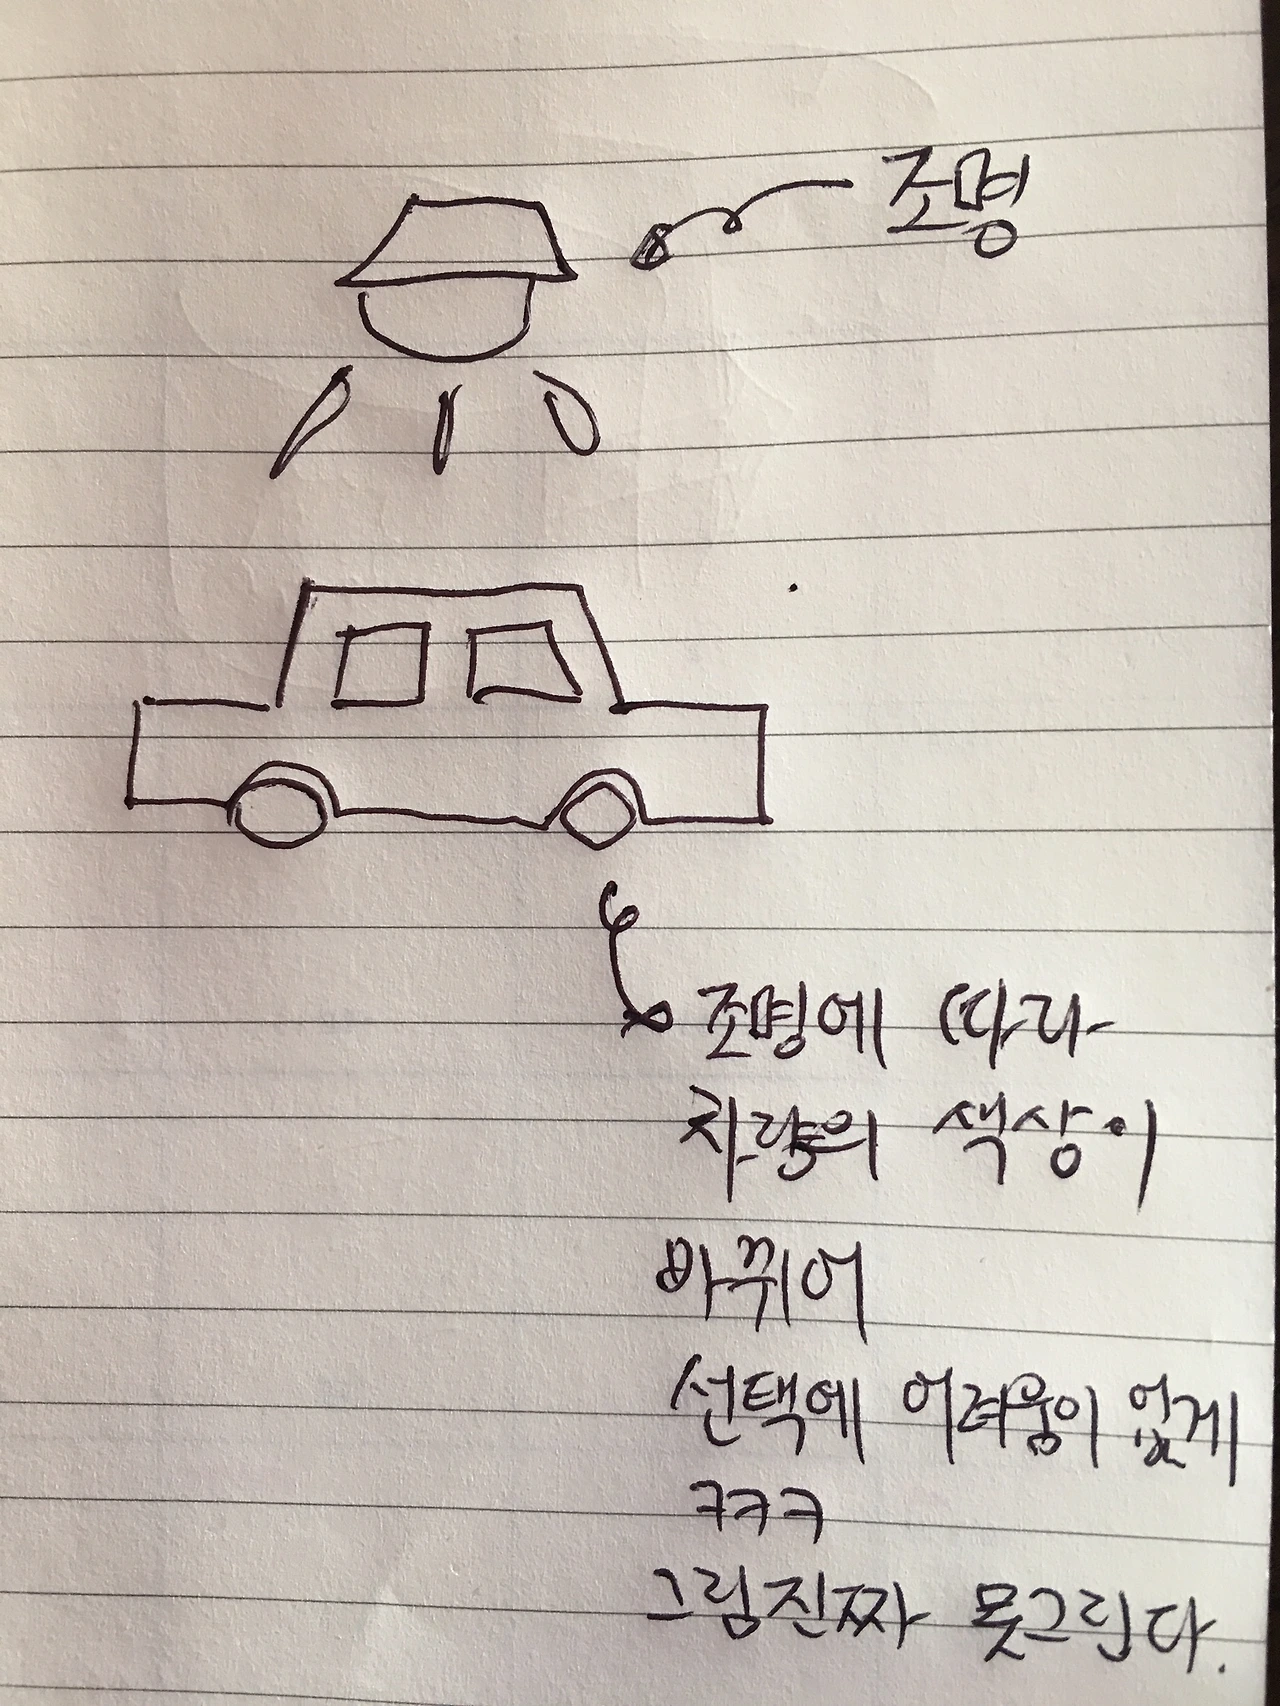 조명
조명에 따라
차량의 색상이
바뀌어
선택에 어려움이 없게
ㅋㅋㅋ
그림진짜 못그린다.